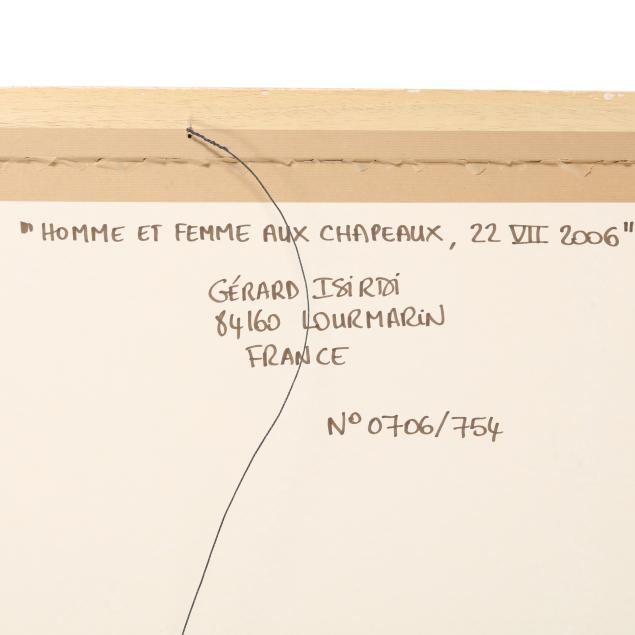 "HOMME ET FEMME AUX CHAPEAUX, 22 VII 2006"
GÉRARD ISiRDi
84160 LOURMARiN
FRANCE
N° 0706/754